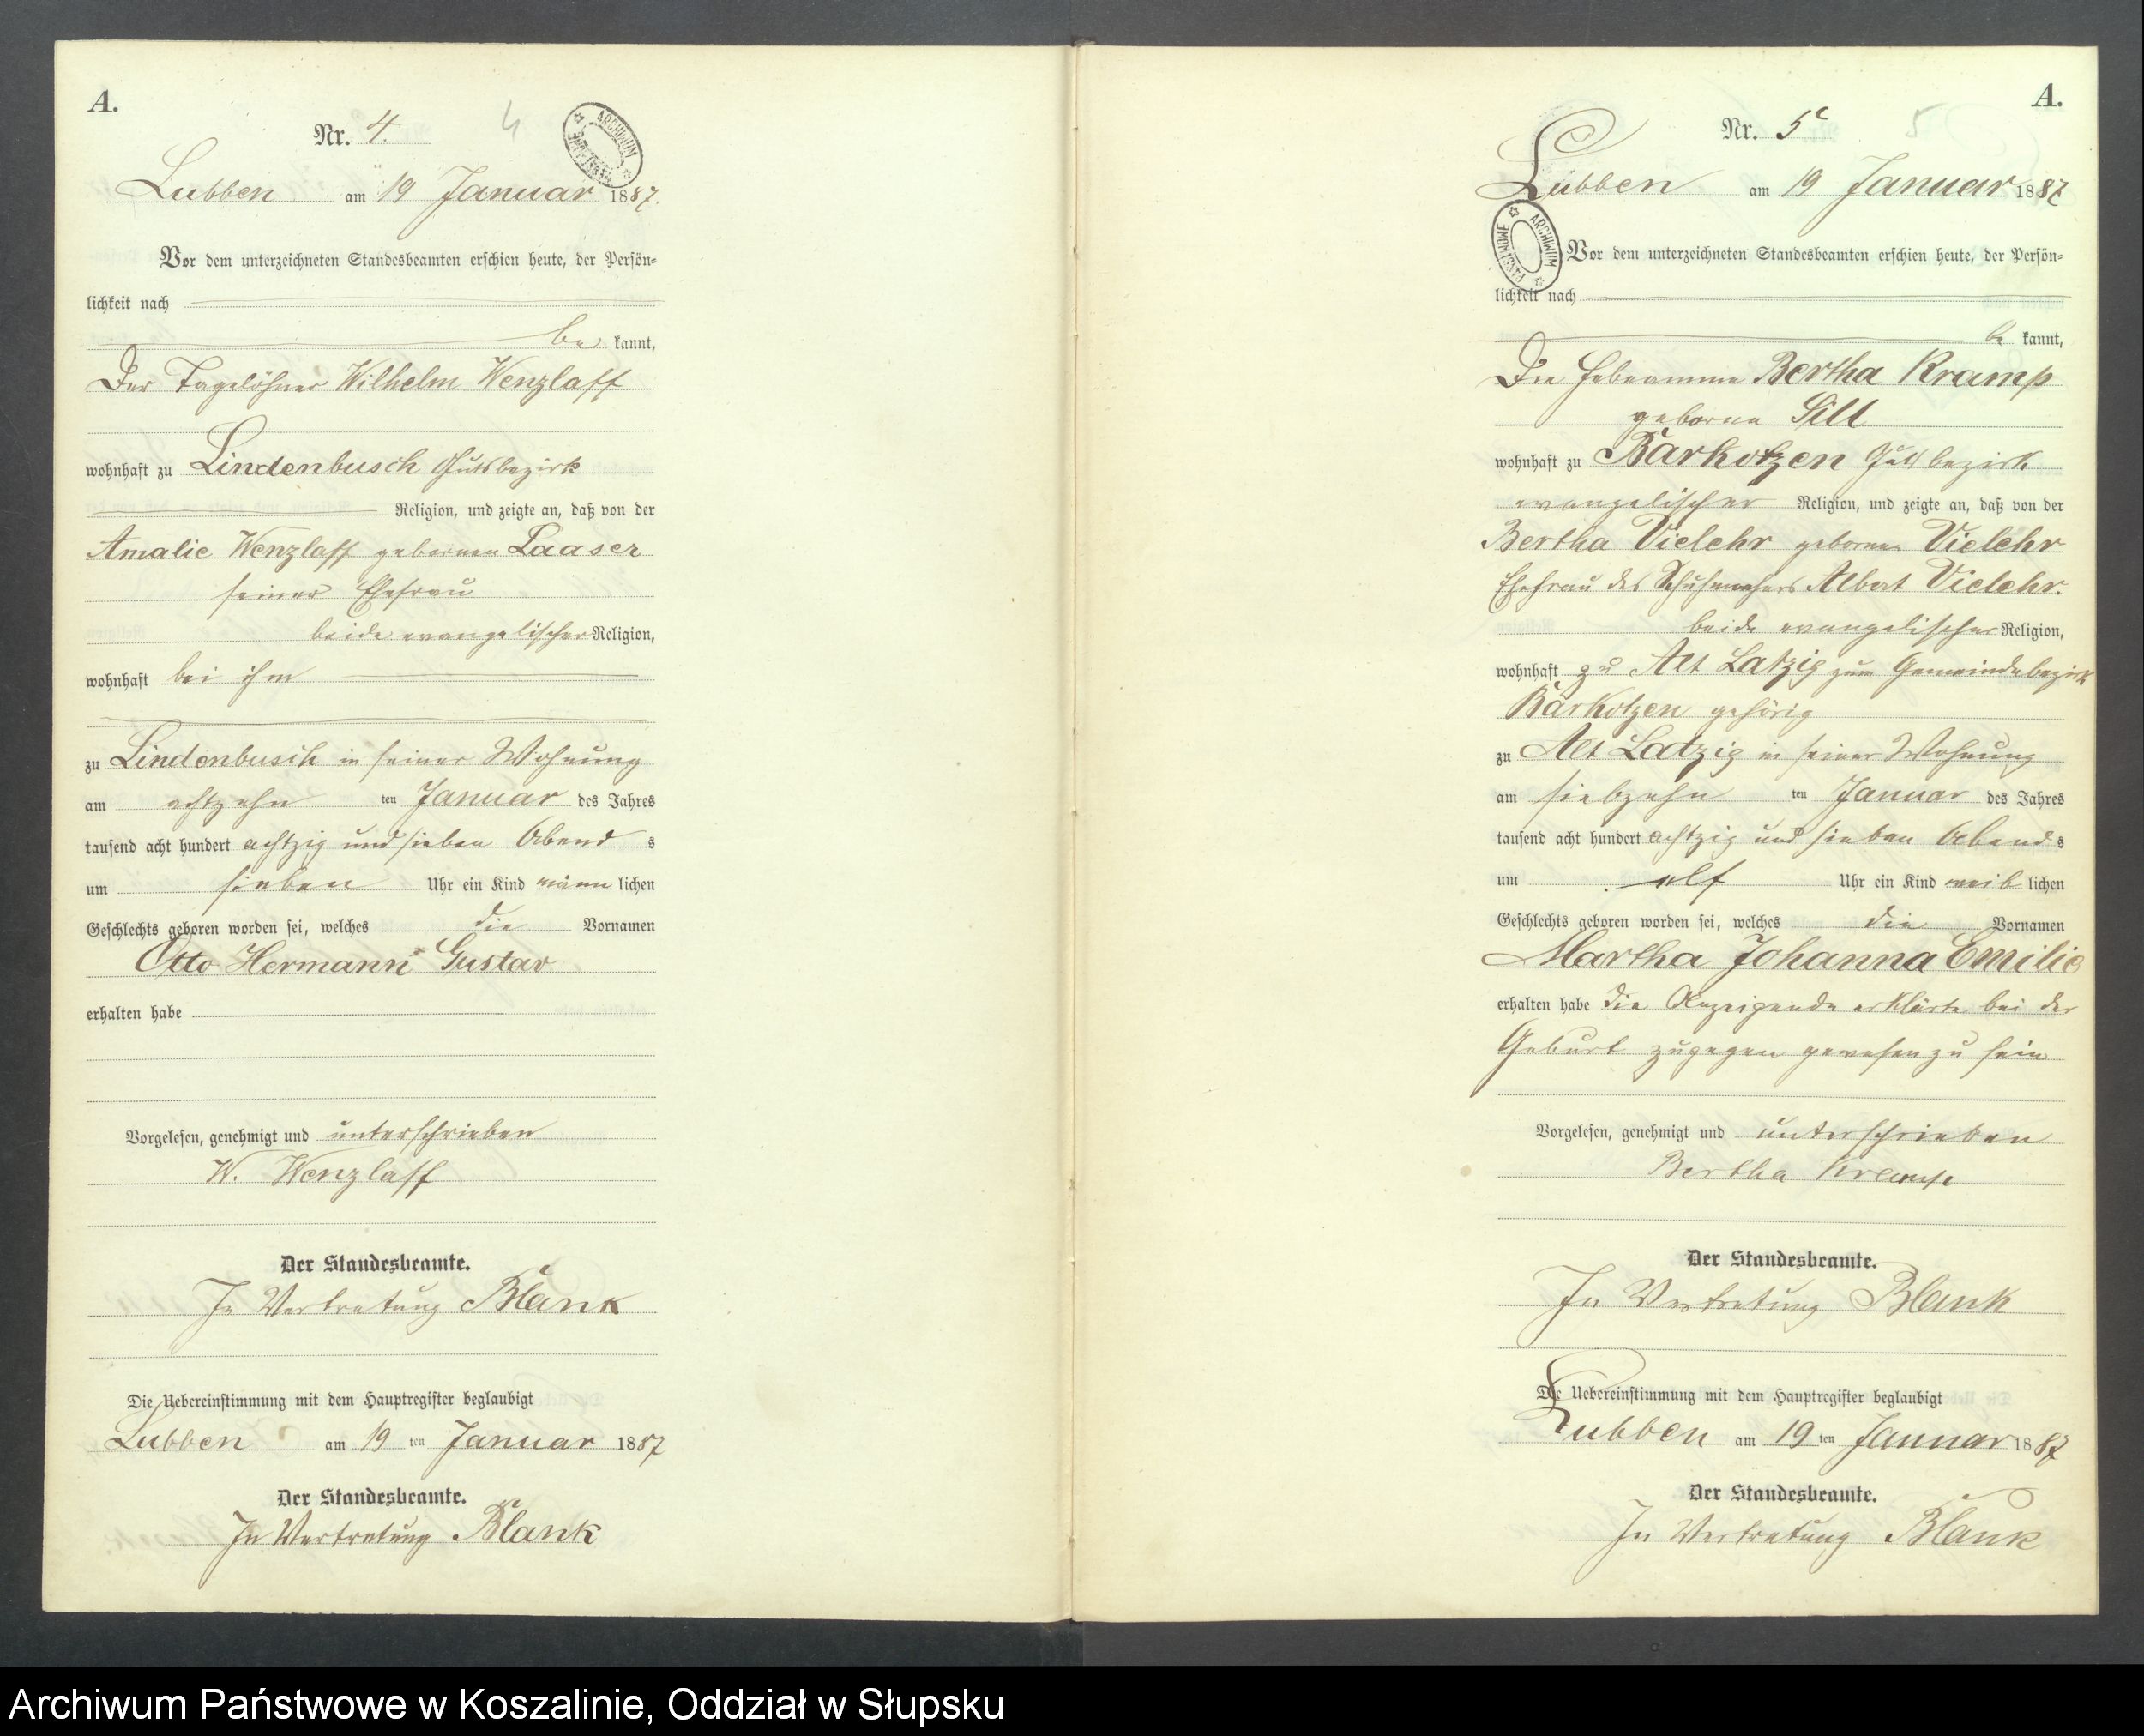 A.
Nr. 4. 4
ARCHIWUM PAŃSTWOWE
Lubben am 19 Januar 1887.
Vor dem unterzeichneten Standesbeamten erschien heute, der Persön-
lichkeit nach
be kannt,
Der Tagelöhner Wilhelm Wenzlaff
wohnhaft zu Lindenbusch Gutsbezirk
Religion, und zeigte an, daß von der
Amalie Wenzlaff gebornen Laaser
seiner Ehefrau
beide evangelischer Religion,
wohnhaft bei ihm
zu Lindenbusch in seiner Wohnung
am achtzehn ten Januar des Jahres
tausend acht hundert achtzig und sieben Abend s
um sieben Uhr ein Kind männ lichen
Geschlechts geboren worden sei, welches die Vornamen
Otto Hermann Gustav
erhalten habe
Vorgelesen, genehmigt und unterschrieben
W. Wenzlaff
Der Standesbeamte.
In Vertretung Blank
Die Uebereinstimmung mit dem Hauptregister beglaubigt
Lubben am 19 ten Januar 1887
Der Standesbeamte.
In Vertretung Blank
A.
Nr. 5 5
Lubben am 19 Januar 1887
ARCHIWUM PAŃSTWOWE
Vor dem unterzeichneten Standesbeamten erschien heute, der Persön-
lichkeit nach
be kannt,
Die Hebeamme Bertha Kramp
geborne Sill
wohnhaft zu Barkotzen Gutsbezirk
evangelischer Religion, und zeigte an, daß von der
Bertha Vielehr gebornen Vielehr
Ehefrau des Schuhmachers Albert Vielehr.
beide evangelischer Religion,
wohnhaft zu Alt Latzig zum Gemeindebezirk
Barkotzen gehörig
zu Alt Latzig in seiner Wohnung
am siebzehn ten Januar des Jahres
tausend acht hundert achtzig und sieben Abend s
um elf Uhr ein Kind weib lichen
Geschlechts geboren worden sei, welches die Vornamen
Martha Johanna Emilie
erhalten habe Die Anzeigende erklärte bei der
Geburt zugegen gewesen zu sein
Vorgelesen, genehmigt und unterschrieben
Bertha Krampe
Der Standesbeamte.
In Vertretung Blank
Die Uebereinstimmung mit dem Hauptregister beglaubigt
Lubben am 19 ten Januar 1887
Der Standesbeamte.
In Vertretung Blank
Archiwum Państwowe w Koszalinie, Oddział w Słupsku